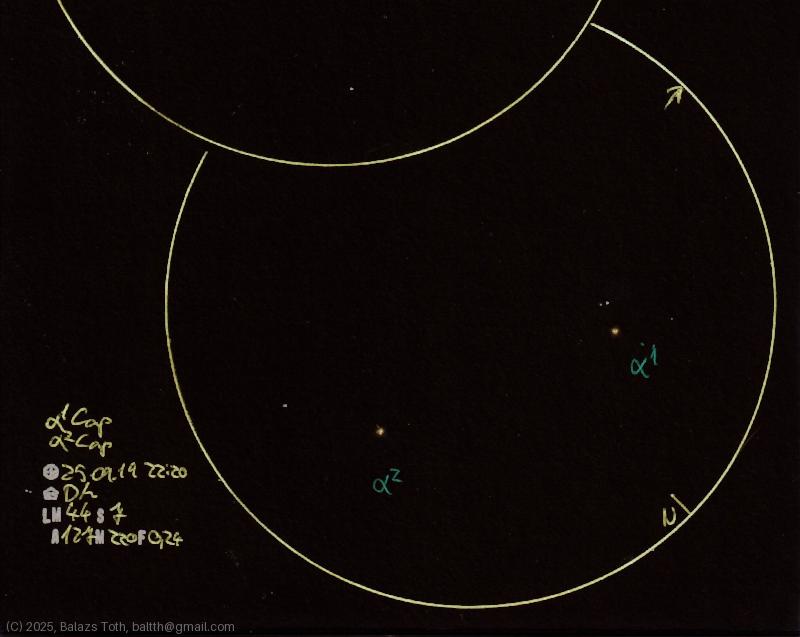 α¹
α²
α¹ Cap
α² Cap
25.09.19 22:20
Dh
LM 44 S 7
A 127 M 220 F 0,24
N
(C) 2025, Balazs Toth, baltth@gmail.com